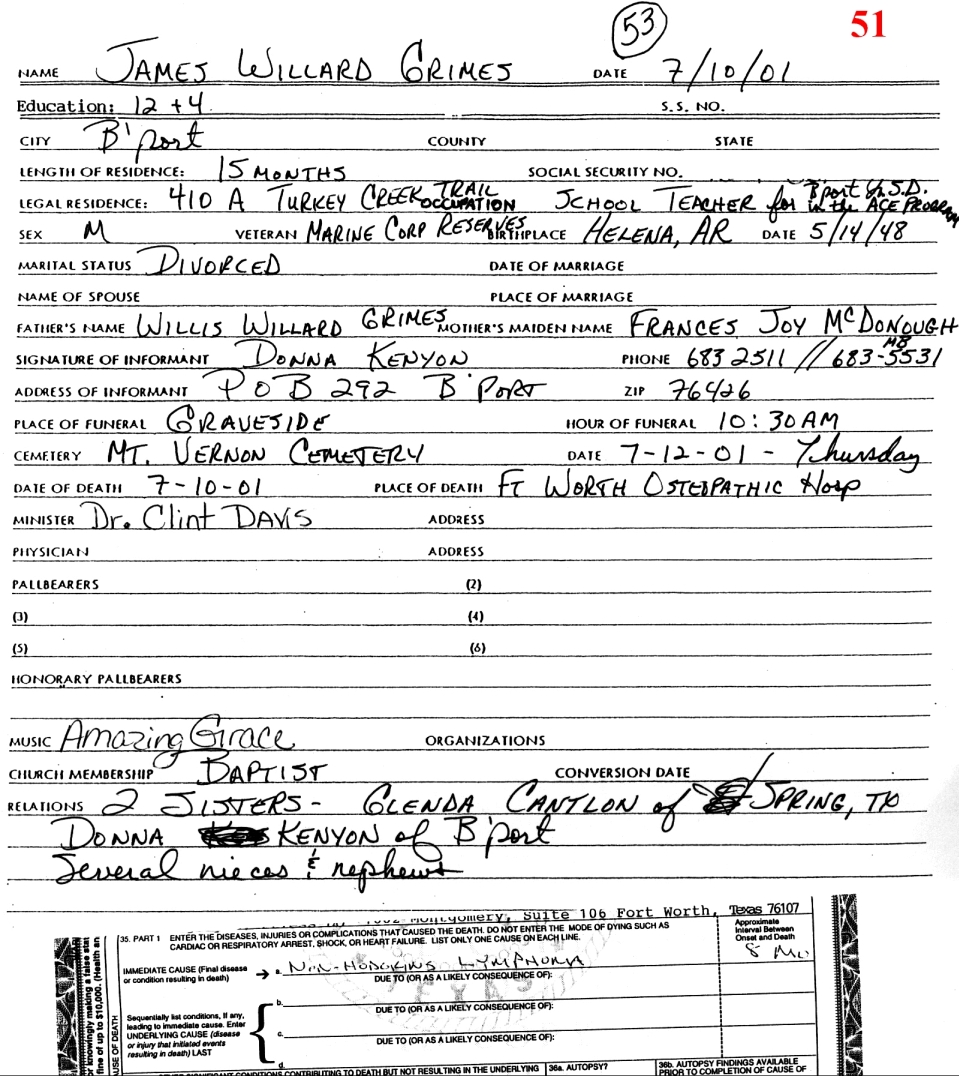 53 51
NAME JAMES WILLARD GRIMES DATE 7/10/01
Education: 12 + 4 S.S. NO.
CITY B'port COUNTY STATE
LENGTH OF RESIDENCE: 15 MONTHS SOCIAL SECURITY NO.
LEGAL RESIDENCE: 410 A TURKEY CREEK TRAIL OCCUPATION SCHOOL TEACHER for B'port I.S.D. in the ACE PROGRAM
SEX M VETERAN MARINE CORP RESERVES BIRTHPLACE HELENA, AR DATE 5/14/48
MARITAL STATUS DIVORCED DATE OF MARRIAGE
NAME OF SPOUSE PLACE OF MARRIAGE
FATHER'S NAME WILLIS WILLARD GRIMES MOTHER'S MAIDEN NAME FRANCES JOY McDONOUGH
SIGNATURE OF INFORMANT DONNA KENYON PHONE 683 2511 // 683-5531
ADDRESS OF INFORMANT P O B 292 B'PORT ZIP 76426
PLACE OF FUNERAL GRAVESIDE HOUR OF FUNERAL 10:30 AM
CEMETERY MT. VERNON CEMETERY DATE 7-12-01 - Thursday
DATE OF DEATH 7-10-01 PLACE OF DEATH FT WORTH OSTEOPATHIC HOSP
MINISTER Dr. Clint DAVIS ADDRESS
PHYSICIAN ADDRESS
PALLBEARERS (2)
(3) (4)
(5) (6)
HONORARY PALLBEARERS
MUSIC Amazing Grace ORGANIZATIONS
CHURCH MEMBERSHIP BAPTIST CONVERSION DATE
RELATIONS 2 SISTERS - GLENDA CANTLON of SPRING, TX
DONNA KENYON of B'port
Several nieces & nephews
Montgomery, Suite 106 Fort Worth, Texas 76107
35. PART 1 ENTER THE DISEASES, INJURIES OR COMPLICATIONS THAT CAUSED THE DEATH. DO NOT ENTER THE MODE OF DYING SUCH AS
CARDIAC OR RESPIRATORY ARREST, SHOCK, OR HEART FAILURE. LIST ONLY ONE CAUSE ON EACH LINE.
Approximate
Interval Between
Onset and Death
8 Mo
IMMEDIATE CAUSE (Final disease
or condition resulting in death) → a. NON-HODGKINS LYMPHOMA
DUE TO (OR AS A LIKELY CONSEQUENCE OF):
b.
DUE TO (OR AS A LIKELY CONSEQUENCE OF):
Sequentially list conditions, if any,
leading to immediate cause. Enter
UNDERLYING CAUSE (disease
or injury that initiated events
resulting in death) LAST
c.
DUE TO (OR AS A LIKELY CONSEQUENCE OF):
d.
CONDITIONS CONTRIBUTING TO DEATH BUT NOT RESULTING IN THE UNDERLYING 36a. AUTOPSY? 36b. AUTOPSY FINDINGS AVAILABLE
PRIOR TO COMPLETION OF CAUSE OF
knowingly making a false
fine of up to $10,000. (Health an
CAUSE OF DEATH
TEXAS